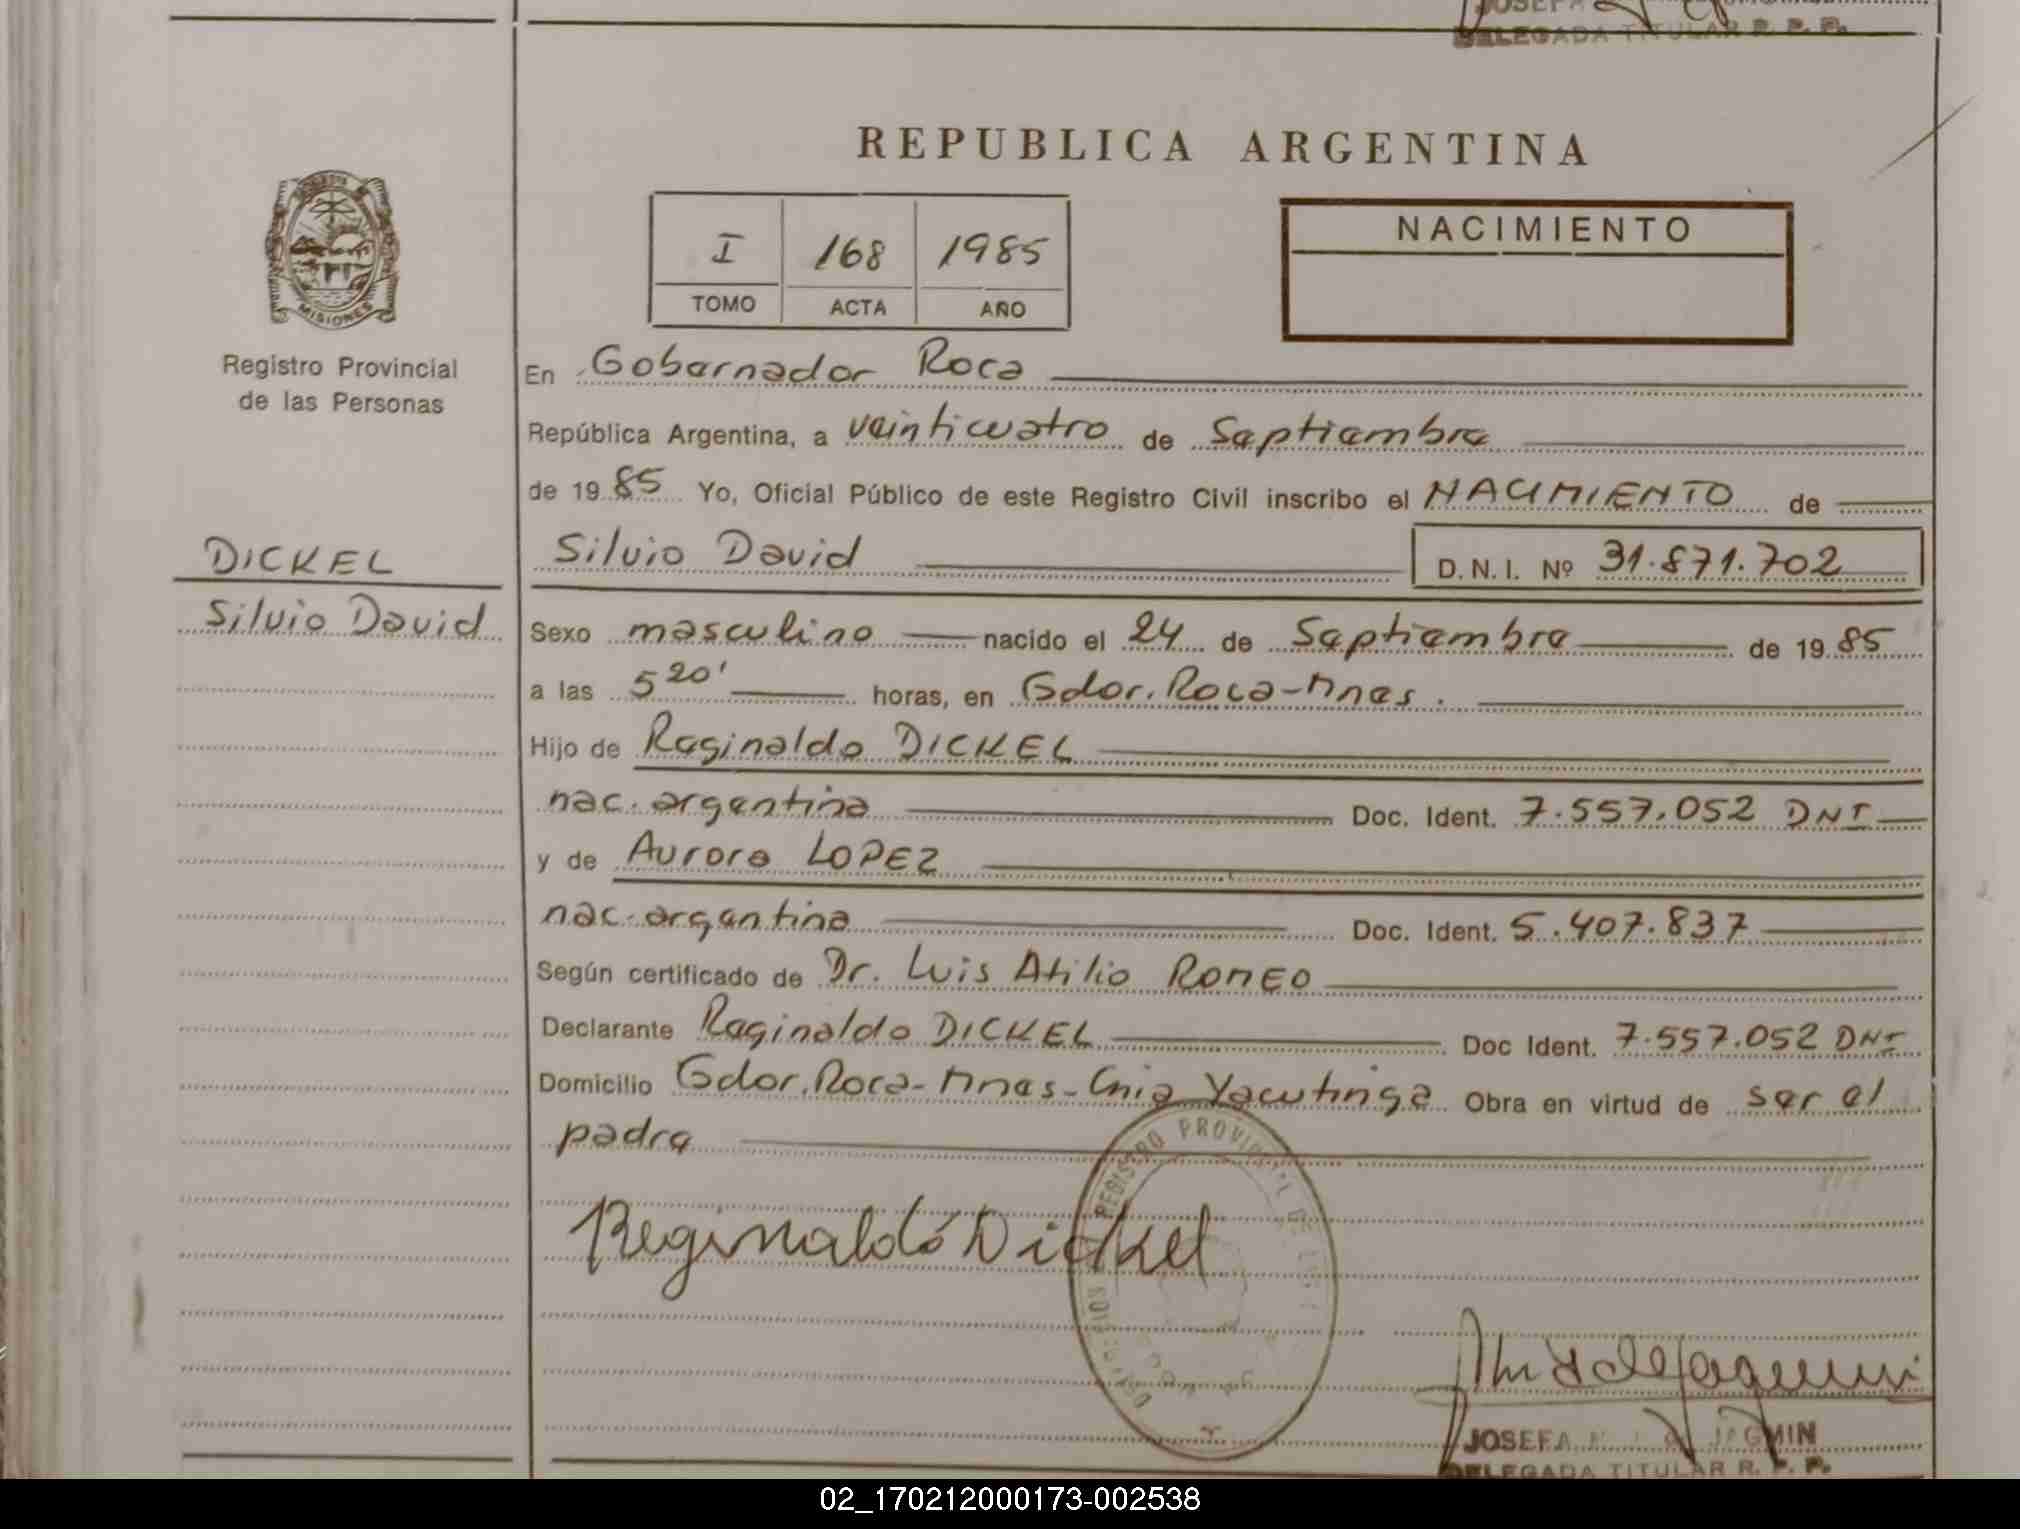 JOSEFA
DELEGADA TITULAR R. P. P.
REPUBLICA ARGENTINA
I 168 1985
TOMO ACTA AÑO
NACIMIENTO
MISIONES
Registro Provincial
de las Personas
En Gobernador Roca
República Argentina, a veinticuatro de Septiembre
de 1985 Yo, Oficial Público de este Registro Civil inscribo el NACIMIENTO de
DICKEL
Silvio David
Silvio David D.N.I. Nº 31.871.702
Sexo masculino nacido el 24 de Septiembre de 1985
a las 5 20' horas, en Gdor. Roca-Mnes.
Hijo de Reginaldo DICKEL
nac. argentina Doc. Ident. 7.557.052 DNI
y de Aurora LOPEZ
nac. argentina Doc. Ident. 5.407.837
Según certificado de Dr. Luis Atilio ROMEO
Declarante Reginaldo DICKEL Doc Ident. 7.557.052 DNI
Domicilio Gdor. Roca-Mnes-Cnia Yacutinga Obra en virtud de ser el
padre
REGISTRO PROVINCIAL DE
Reginaldo Dickel
JOSEFA
DELEGADA TITULAR R. P. P.
02_170212000173-002538